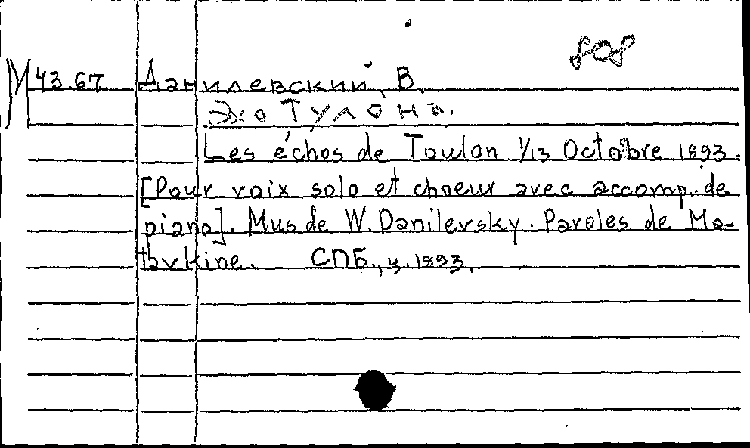 808
M 43.67 Данилевский, В.
Эхо Тулона.
Les échos de Toulon 1/13 Octobre 1893.
[Pour voix solo et choeur avec accomp. de
piano]. Mus de W. Danilevsky. Paroles de Ma-
СПБ, ц. 1893.